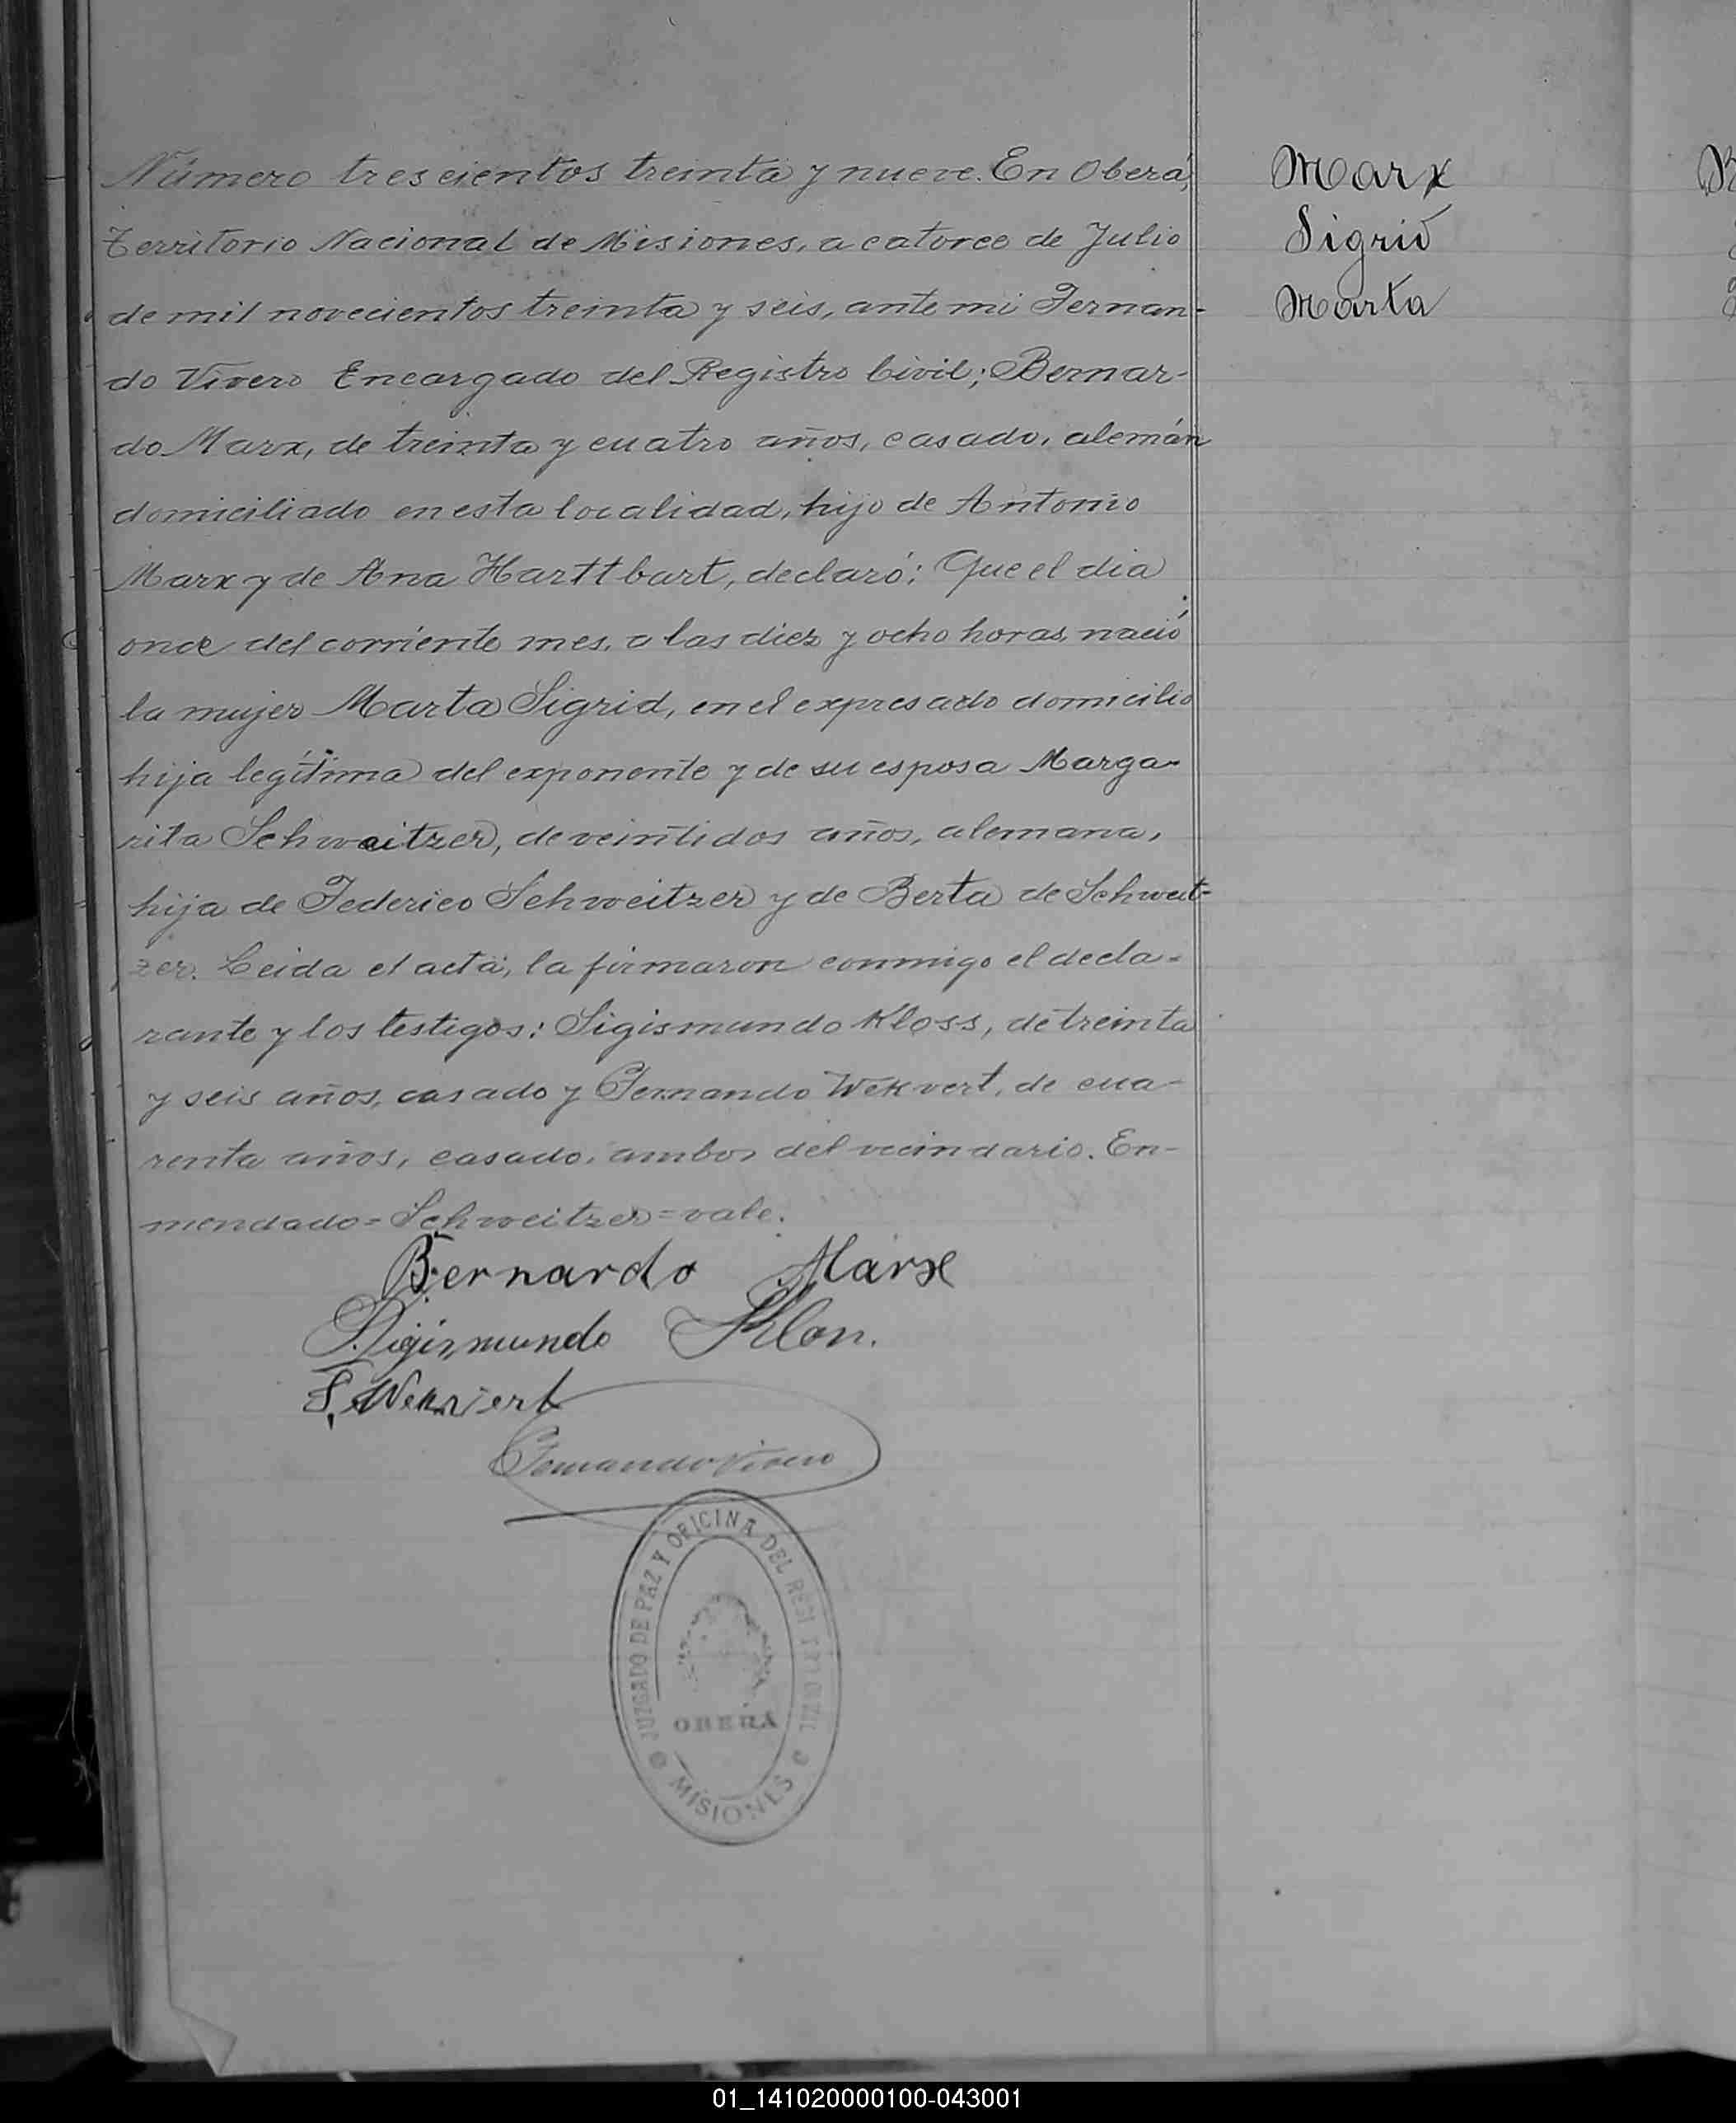 Número trescientos treinta y nueve. En Oberá,
Territorio Nacional de Misiones, a catorce de Julio
de mil novecientos treinta y seis, ante mi Fernan-
do Vivero Encargado del Registro Civil; Bernar-
do Marx, de treinta y cuatro años, casado, alemán
domiciliado en esta localidad, hijo de Antonio
Marx y de Ana Harttbart, declaró: Que el dia
once del corriente mes, a las diez y ocho horas, nació
la mujer Marta Sigrid, en el expresado domicilio
hija legítima del exponente y de su esposa Marga-
rita Schweitzer, de veintidos años, alemana,
hija de Federico Schweitzer y de Berta de Schweit-
zer. Leida el acta, la firmaron conmigo el decla-
rante y los testigos: Sigismundo Kloss, de treinta
y seis años, casado y Fernando Wekvert, de cua-
renta años, casado, ambos del vecindario. En-
mendado=Schweitzer=vale.
Bernardo Marx
Sigismundo Kloss.
F. Wekvert
Fernando Vivero
JUZGADO DE PAZ Y OFICINA DEL REGISTRO CIVIL
OBERÁ
MISIONES
Marx
Sigrid
Marta
01_141020000100-043001